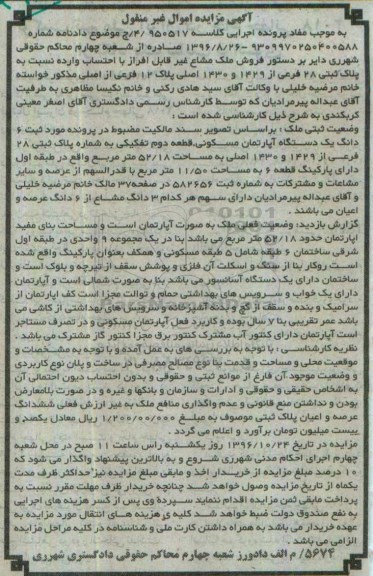 آگهی مزایده اموال غیر منقول
به موجب مفاد پرونده اجرایی کلاسه ۹۵۰۵۱۷ /۴/ج موضوع دادنامه شماره
۹۳۰۹۹۷۰۲۵۰۴۰۰۵۸۸ -۱۳۹۶/۸/۲۶ صادره از شعبه چهارم محاکم حقوقی
شهرری دایر بر دستور فروش ملک مشاع غیر قابل افراز با احتساب وارده نسبت به
پلاک ثبتی ۲۸ فرعی از ۱۴۲۹ و ۱۴۳۰ اصلی پلاک ۱۲ فرعی از اصلی مذکور خواسته
خانم مرضیه خلیلی با وکالت آقای سید هادی رکنی و خانم نکیسا مظاهری به طرفیت
آقای عبداله پیرمرادیان که توسط کارشناس رسمی دادگستری آقای اصغر معینی
کربکندی به شرح ذیل کارشناسی شده است :
وضعیت ثبتی ملک : براساس تصویر سند مالکیت مضبوط در پرونده مورد ثبت ۶
دانگ یک دستگاه آپارتمان مسکونی،قطعه دوم تفکیکی به شماره پلاک ثبتی ۲۸
فرعی از ۱۴۲۹ و ۱۴۳۰ اصلی به مساحت ۵۲/۱۸ متر مربع واقع در طبقه اول
دارای پارکینگ قطعه ۶ به مساحت ۱۱/۵۰ متر مربع با قدرالسهم از عرصه و سایر
مشاعات و مشترکات به شماره ثبت ۵۸۲۶۵۶ در صفحه۳۷ مالک خانم مرضیه خلیلی
و آقای عبداله پیرمرادیان دارای سهم هر کدام ۳ دانگ مشاع از ۶ دانگ عرصه و
اعیان می باشند .
گزارش بازدید: وضعیت فعلی ملک به صورت آپارتمان است و مساحت بنای مفید
اپارتمان حدود ۵۲/۱۸ متر مربع می باشد بنا در یک مجموعه ۹ واحدی در طبقه اول
شرقی ساختمان ۶ طبقه شامل ۵ طبقه مسکونی و همکف بعنوان پارکینگ واقع شده
است روکار بنا از سنگ و اسکلت آن فلزی و پوشش سقف از تیرچه و بلوک است و
ساختمان دارای یک دستگاه آسانسور می باشد بنا به صورت شمالی است و آپارتمان
دارای یک خواب و سرویس های بهداشتی حمام و توالت مجزا است کف اپارتمان از
سرامیک و بدنه و سقف از گچ و بدنه آشپزخانه و سرویس های بهداشتی از کاشی می
باشد عمر تقریبی بنا ۷ سال بوده و کاربرد فعل آپارتمان مسکونی و در تصرف مستاجر
است آپارتمان دارای کنتور آب مشترک کنتور برق مجزا کنتور گاز مشترک می باشد .
نظریه کارشناسی : با توجه به بررسی های به عمل آمده و با توجه به مشخصات و
موقعیت محلی و مساحت و قدمت بنا نوع مصالح مصرفی در ساخت و پلان نوع کاربردی
و وضعیت موجود آن فارغ از موانع ثبتی و حقوقی و بدون احتساب دیون احتمالی آن
به اشخاص حقیقی و حقوقی و ادارات و سازمان و بانکها و غیره و در صورت بلامعارض
بودن و نداشتن منع قانونی و عدم واگذاری منافع ملک به غیر ارزش فعلی ششدانگ
عرصه و اعیان پلاک ثبتی موصوف به مبلغ ۱/۲۰۰/۰۰۰/۰۰۰ ریال معادل یکصد و
بیست میلیون تومان برآورد و اعلام می گردد .
مزایده در تاریخ ۱۳۹۶/۱۰/۲۴ روز یکشنبه راس ساعت ۱۱ صبح در محل شعبه
چهارم اجرای احکام مدنی شهرری شروع و به بالاترین پیشنهاد واگذار می شود که
۱۰ درصد مبلغ مزایده از خریدار اخذ و مابقی مبلغ مزایده نیز حداکثر ظرف مدت
یکماه از تاریخ مزایده وصول خواهد شد چنانچه خریدار ظرف مهلت مقرر نسبت به
پرداخت مابقی ثمن مزایده اقدام ننماید سپرده وی پس از کسر هزینه های اجرایی
به نفع صندوق دولت ضبط خواهد شد کلیه ی هزینه های انتقال مورد مزایده به
عهده خریدار می باشد به همراه داشتن کارت ملی و شناسنامه در کلیه مراحل مزایده
الزامی می باشد .
۵۶۷۴/ م الف دادورز شعبه چهارم محاکم حقوقی دادگستری شهرری